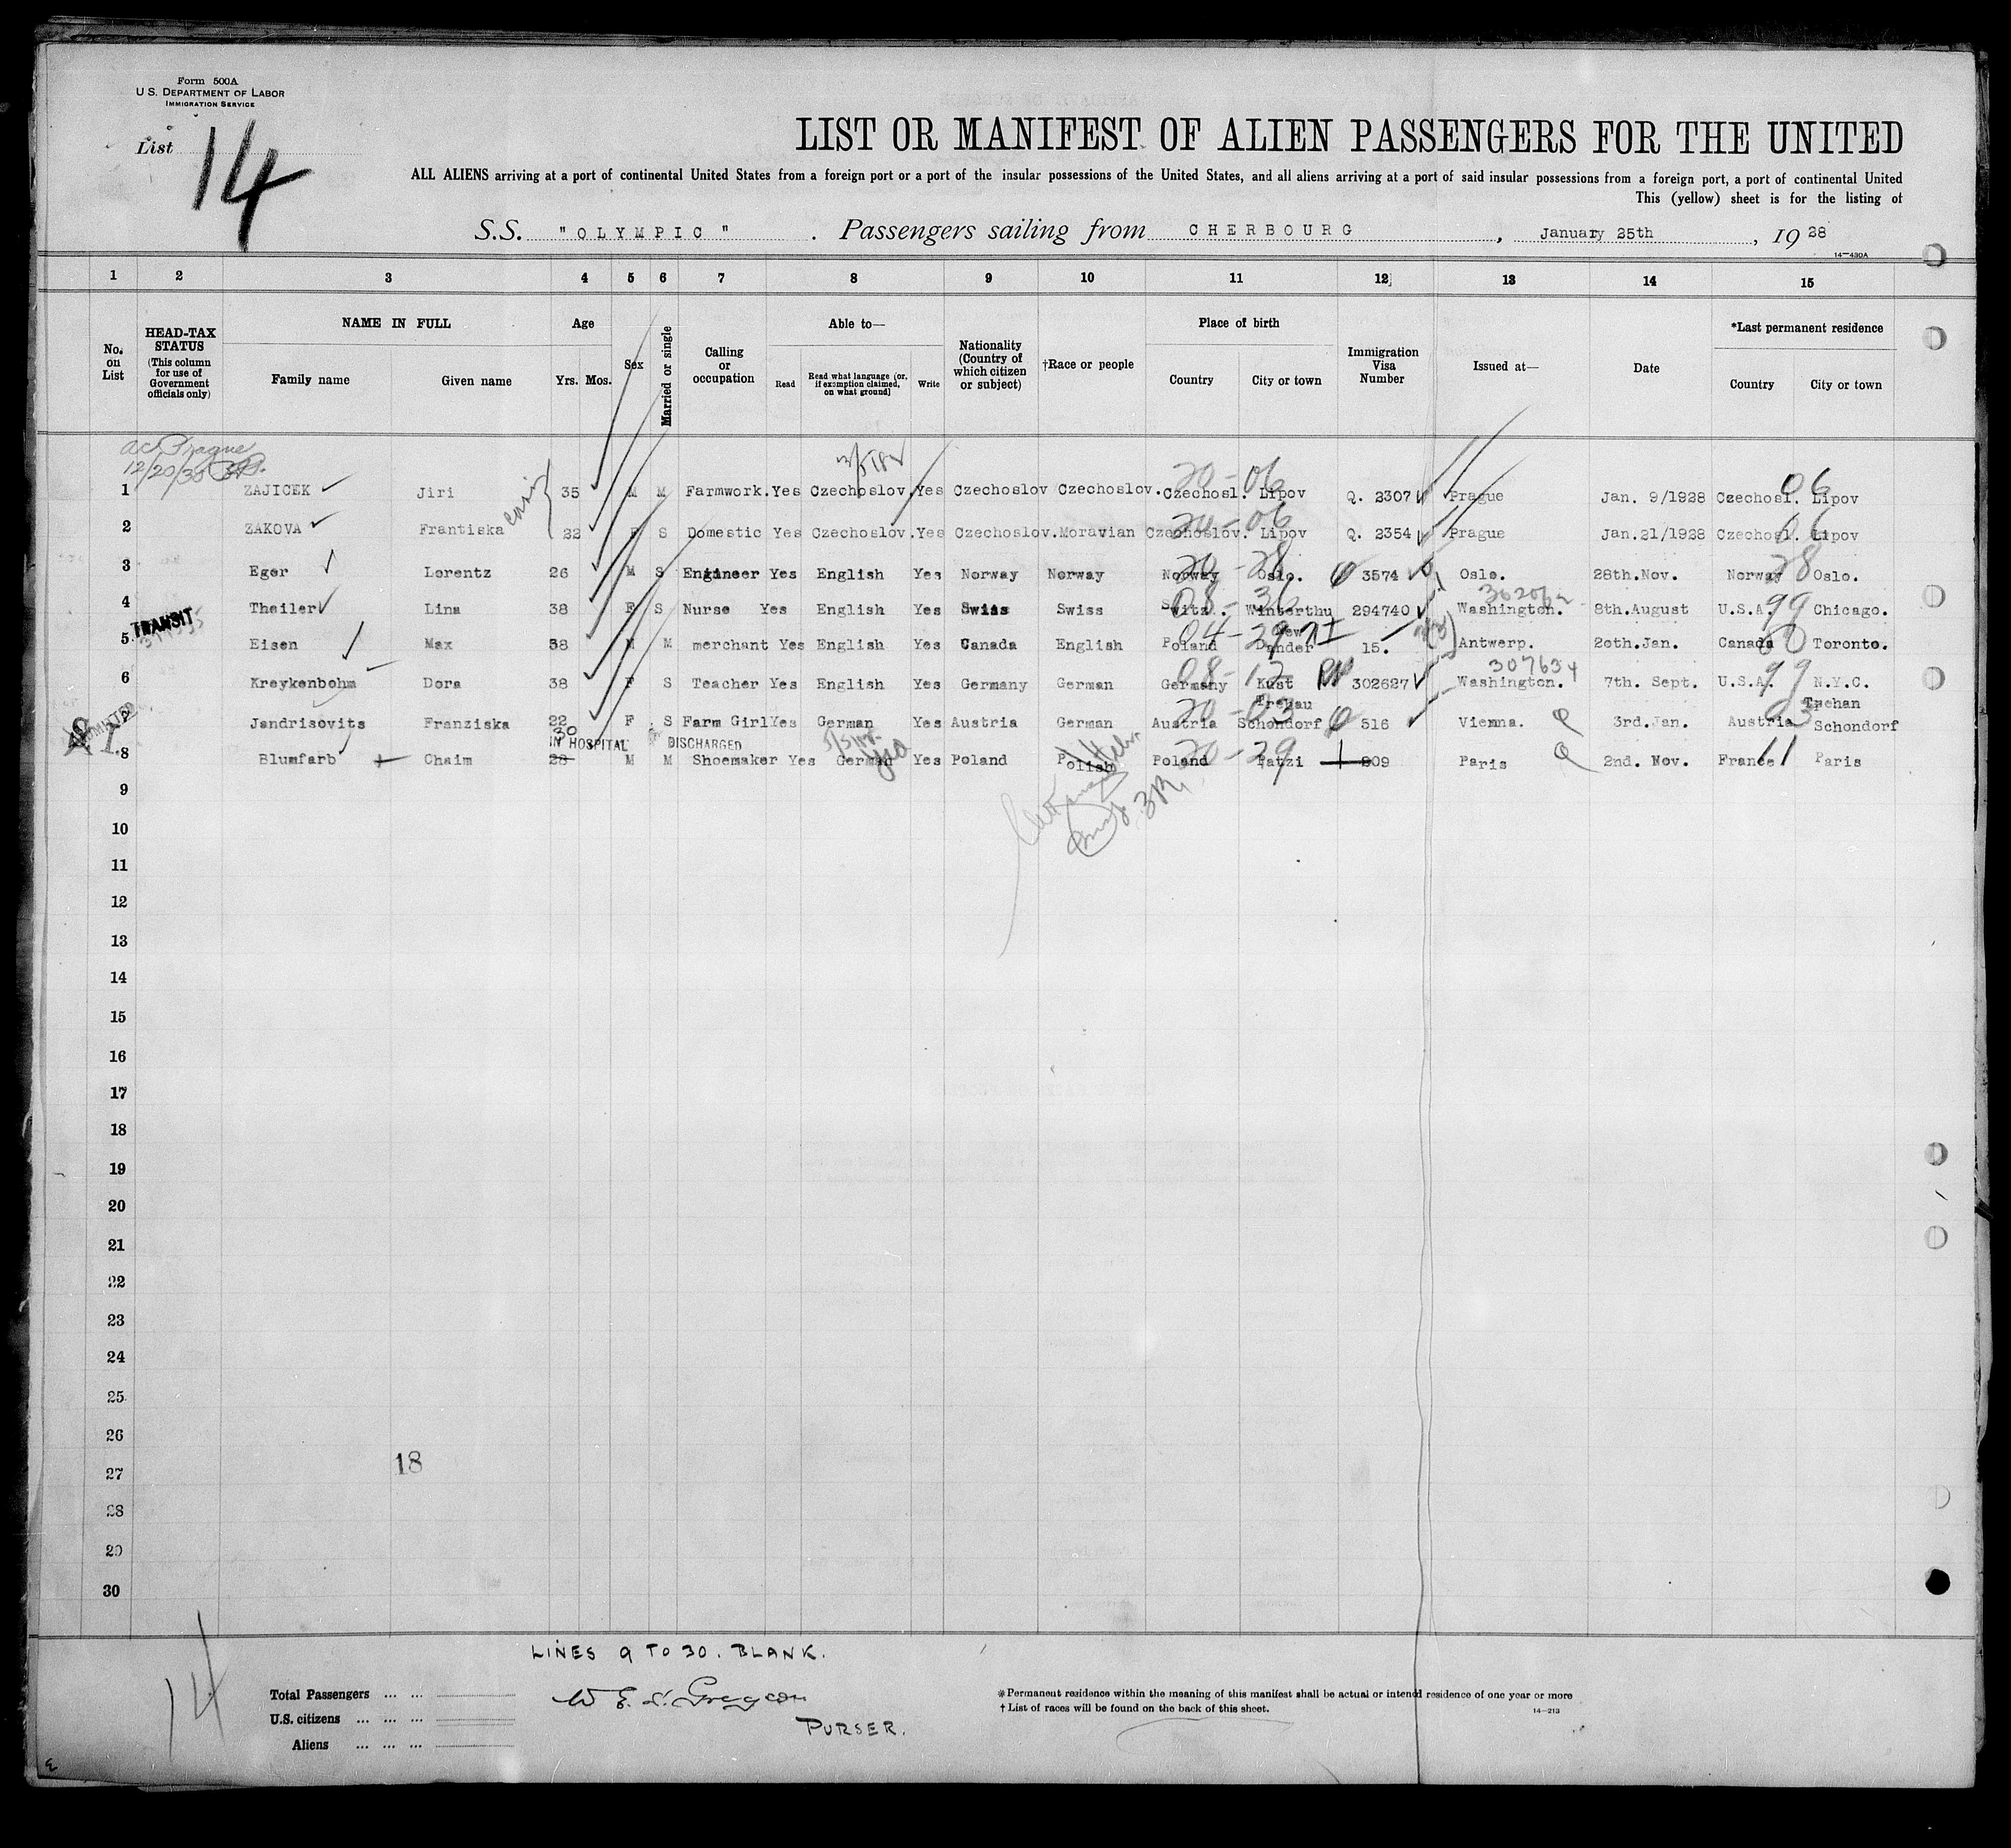 Form 500A
U. S. DEPARTMENT OF LABOR
IMMIGRATION SERVICE
List 14
LIST OR MANIFEST OF ALIEN PASSENGERS FOR THE UNITED
ALL ALIENS arriving at a port of continental United States from a foreign port or a port of the insular possessions of the United States, and all aliens arriving at a port of said insular possessions from a foreign port, a port of continental United
This (yellow) sheet is for the listing of
S.S. "OLYMPIC". Passengers sailing from CHERBOURG, January 25th, 19 28
14—430A
1 2 3 4 5 6 7 8 9 10 11 12 13 14 15
No. on List
HEAD-TAX STATUS (This column for use of Government officials only)
NAME IN FULL
Family name Given name
Age
Yrs. Mos.
Sex
Married or single
Calling or occupation
Able to—
Read
Read what language (or, if exemption claimed, on what ground)
Write
Nationality (Country of which citizen or subject)
†Race or people
Place of birth
Country City or town
Immigration Visa Number
Issued at—
Date
*Last permanent residence
Country City or town
ac Prague
12/20/35
1 ZAJICEK Jiri 35 M M Farmwork. Yes Czechoslov. Yes Czechoslov Czechoslov. Czechosl. Lipov 20-06 Q. 2307 Prague Jan. 9/1928 Czechosl. Lipov 06
2 ZAKOVA Frantiska 22 F S Domestic Yes Czechoslov. Yes Czechoslov. Moravian Czechoslov. Lipov 20-06 Q. 2354 Prague Jan.21/1928 Czechosl. Lipov 06
3 Eger Lorentz 26 M S Engineer Yes English Yes Norway Norway Norway Oslo. 20-28 3574 Oslo. 28th.Nov. Norway Oslo. 28
4 Theiler Lina 38 F S Nurse Yes English Yes Swiss Swiss Switz. Winterthu 08-36 294740 Washington. 8th.August U.S.A. Chicago. 99
TRANSIT
5 Eisen Max 38 M M merchant Yes English Yes Canada English Poland New Dander 04-29 15. Antwerp. 20th.Jan. Canada Toronto.
307634
6 Kreykenbohm Dora 38 F S Teacher Yes English Yes Germany German Germany Kust 08-12 302627 Washington. 7th. Sept. U.S.A. N.Y.C. 99
ADMITTED
7 Jandrisovits Franziska 22 F S Farm Girl Yes German Yes Austria German Austria Schondorf 20-03 516 Vienna. 3rd.Jan. Austria Schondorf 03
IN HOSPITAL DISCHARGED
8 Blumfarb Chaim 28 30 M M Shoemaker Yes German Yes Poland Polish Poland Patzi 20-29 809 Paris 2nd. Nov. France Paris 11
9
10
11
12
13
14
15
16
17
18
19
20
21
22
23
24
25
26
27
18
28
29
30
LINES 9 TO 30. BLANK.
14
Total Passengers ... ...
U.S. citizens ... ... ...
Aliens ... ... ...
PURSER.
*Permanent residence within the meaning of this manifest shall be actual or intend residence of one year or more
† List of races will be found on the back of this sheet.
14—213